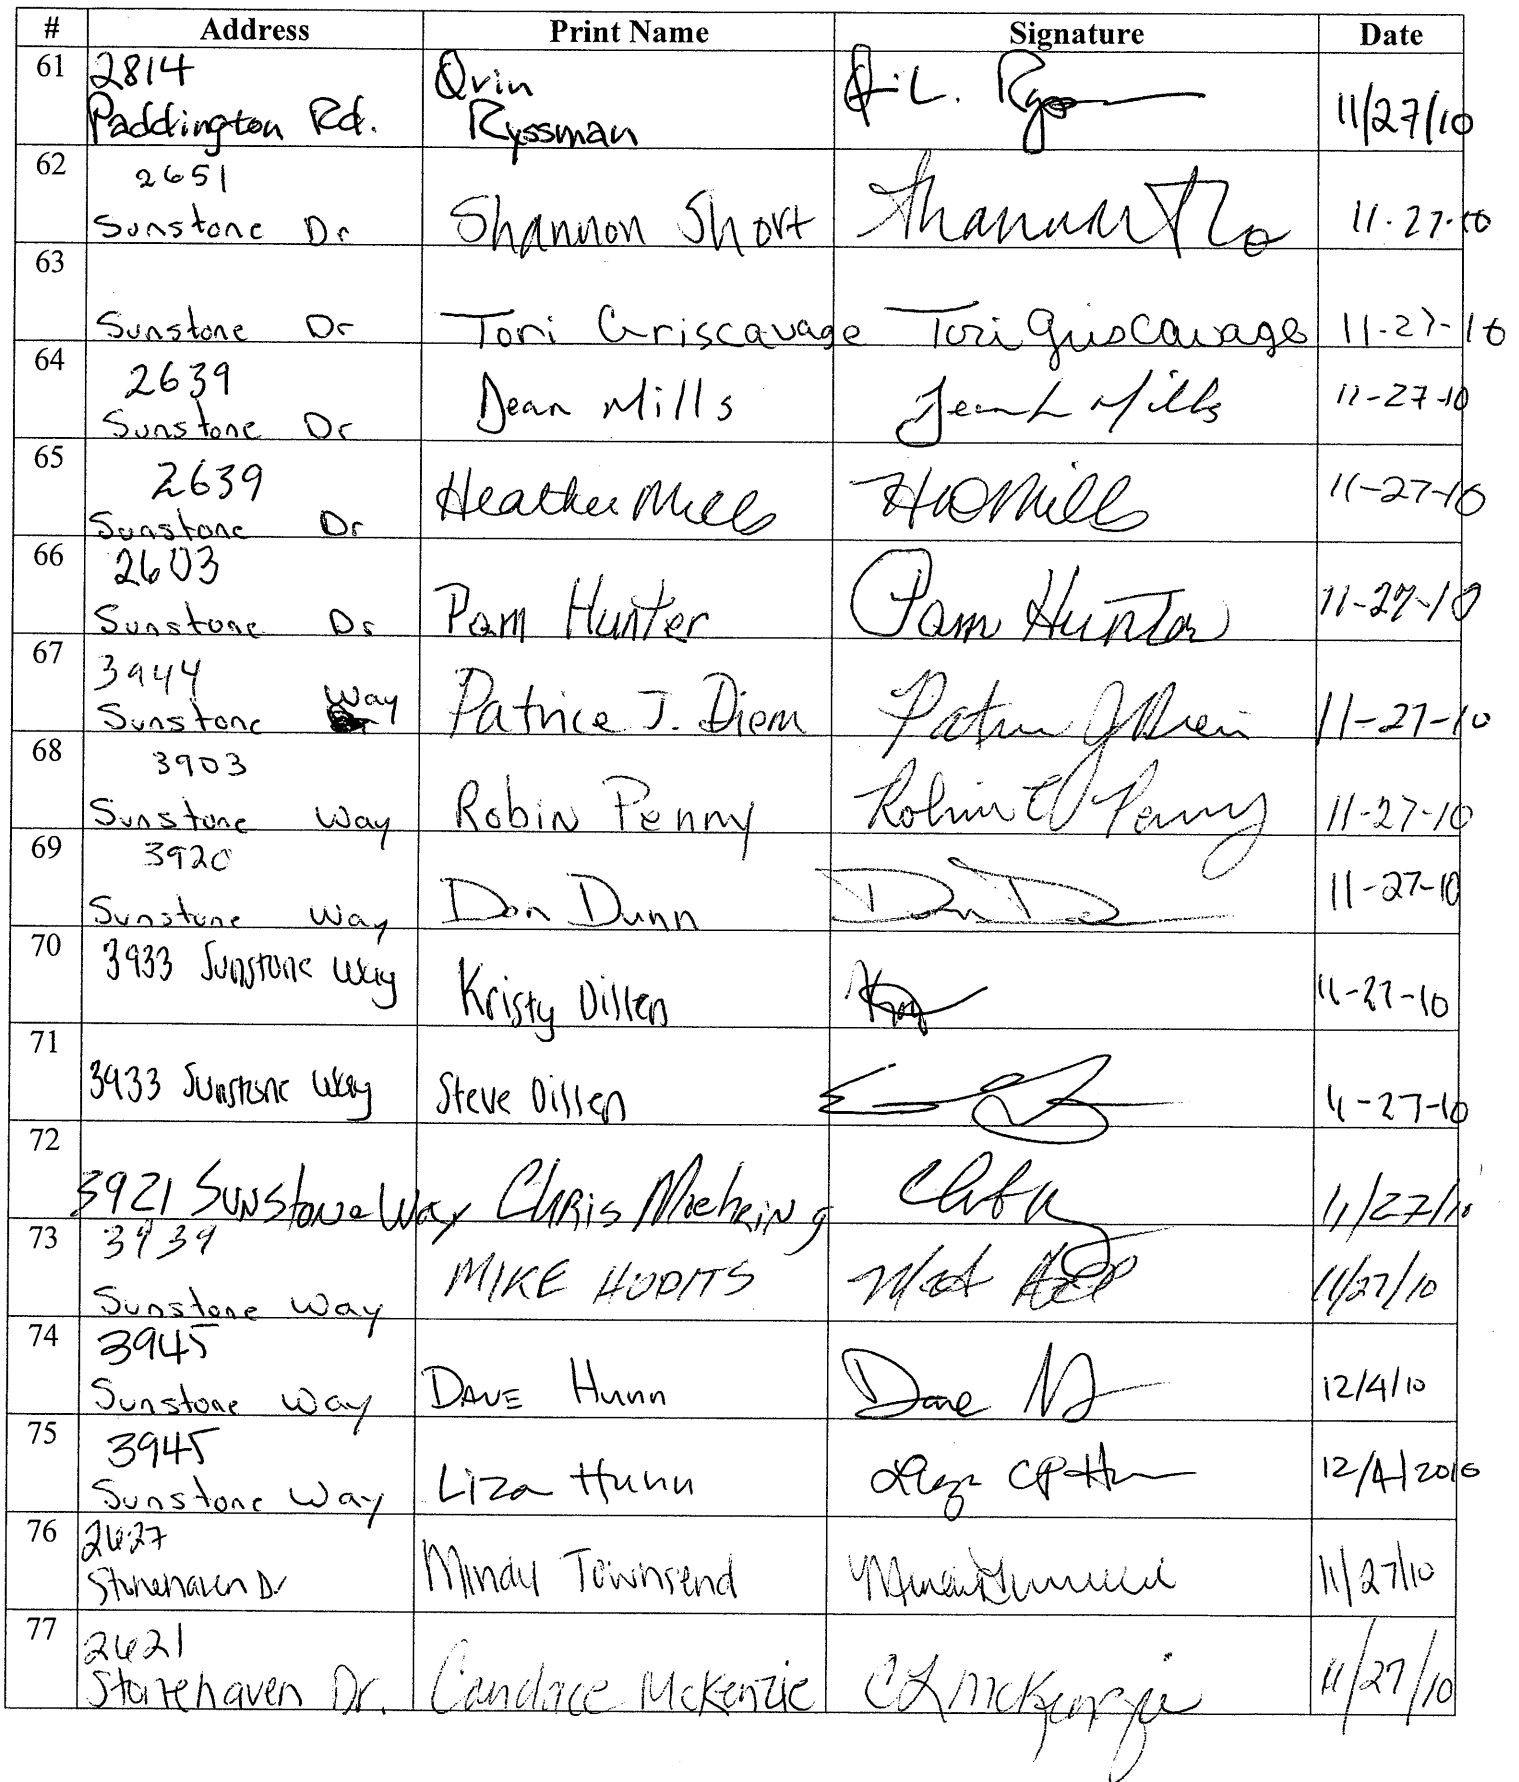 # Address Print Name Signature Date
61 2814 Qrin
Paddington Rd. Ryssman 11/27/10
62 2651
Sunstone Dr Shannon Short 11-27-10
63
Sunstone Dr Tori Griscavage Tori Griscavage 11-27-10
64 2639
Sunstone Dr Dean Mills Dean L Mills 11-27-10
65 2639
Sunstone Dr Heather Mills HDMills 11-27-10
66 2603
Sunstone Dr Pam Hunter Pam Hunter 11-27-10
67 3944 Way
Sunstone Patrice J. Diem 11-27-10
68 3903
Sunstone Way Robin Penny Robin Penny 11-27-10
69 3920
Sunstone Way Don Dunn 11-27-10
70 3933 Sunstone Way Kristy Dillen 11-27-10
71 3933 Sunstone Way Steve Dillen 11-27-10
72
3921 Sunstone Way Chris 11/27/10
73 3939
Sunstone Way MIKE HUDITS 11/27/10
74 3945
Sunstone Way DAVE Hunn Dave 12/4/10
75 3945
Sunstone Way Liza Hunn 12/4/2010
76 2627
Stonehaven Dr Mindy Townsend 11/27/10
77 2621
Stonehaven Dr. Candace McKenzie CL McKenzie 11/27/10